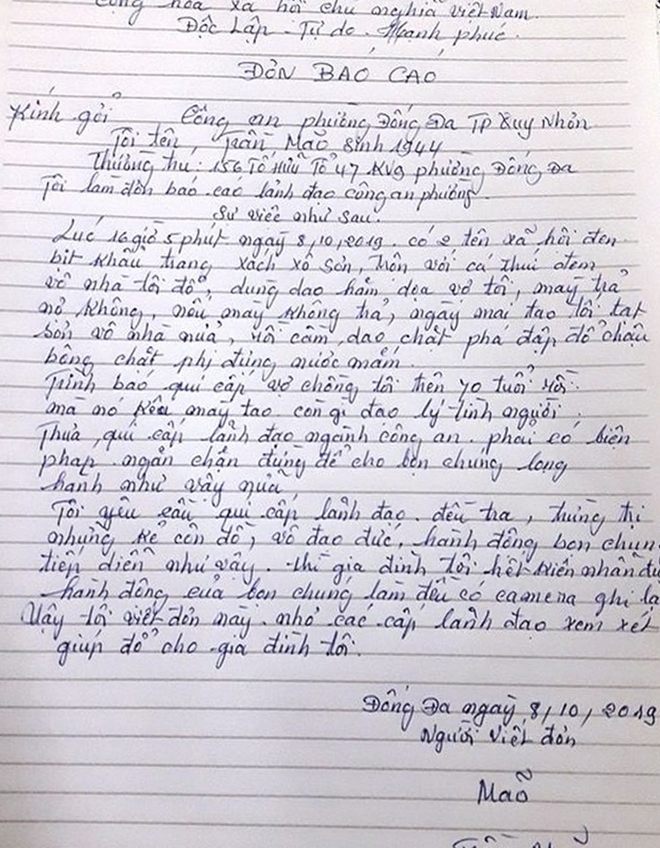 Cộng hòa xã hội chủ nghĩa Việt Nam.
Độc Lập - Tự do - Hạnh phúc.
ĐƠN BÁO CÁO
Kính gởi Công an phường Đống Đa TP Quy Nhơn
Tôi tên, Trần Mão sinh 1944
Thường trú: 156 Tố Hữu Tổ 47 KV9 phường Đống Đa
Tôi làm đơn báo cáo lãnh đạo công an phường.
Sự việc như sau.
Lúc 16 giờ 5 phút ngày 8, 10, 2019. có 2 tên xã hội đen
bịt khẩu trang xách xô sơn, trộn với cá thúi đem
vô nhà tôi đổ, dùng dao hăm dọa vợ tôi, mày trả
nợ không, nếu mày không trả, ngày mai tao tới tạt
sơn vô nhà nữa, rồi cầm dao chặt phá đập đổ chậu
bông chặt phi đựng nước mắm.
Trình báo quí cấp vợ chồng tôi trên 70 tuổi rồi
mà nó kêu mày tao còn gì đạo lý tình người.
Thưa, quí cấp lãnh đạo ngành công an. phải có biện
pháp ngăn chặn đừng để cho bọn chúng lọng
hành như vậy nữa,
Tôi yêu cầu quí cấp lãnh đạo. đều tra, trừng trị
những kẻ côn đồ, vô đạo đức, hành động bọn chún
tiếp diễn như vậy. thì gia đình tôi hết kiên nhẫn đư
hành động của bọn chúng làm đều có camera ghi lạ
Vậy tôi viết đơn này. nhờ các cấp lãnh đạo xem xét
giúp đỡ cho gia đình tôi.
Đống Đa ngày 8, 10, 2019
Người viết đơn
Mão